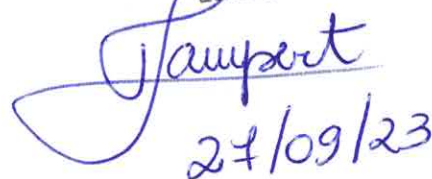 Lampert
27/09/23